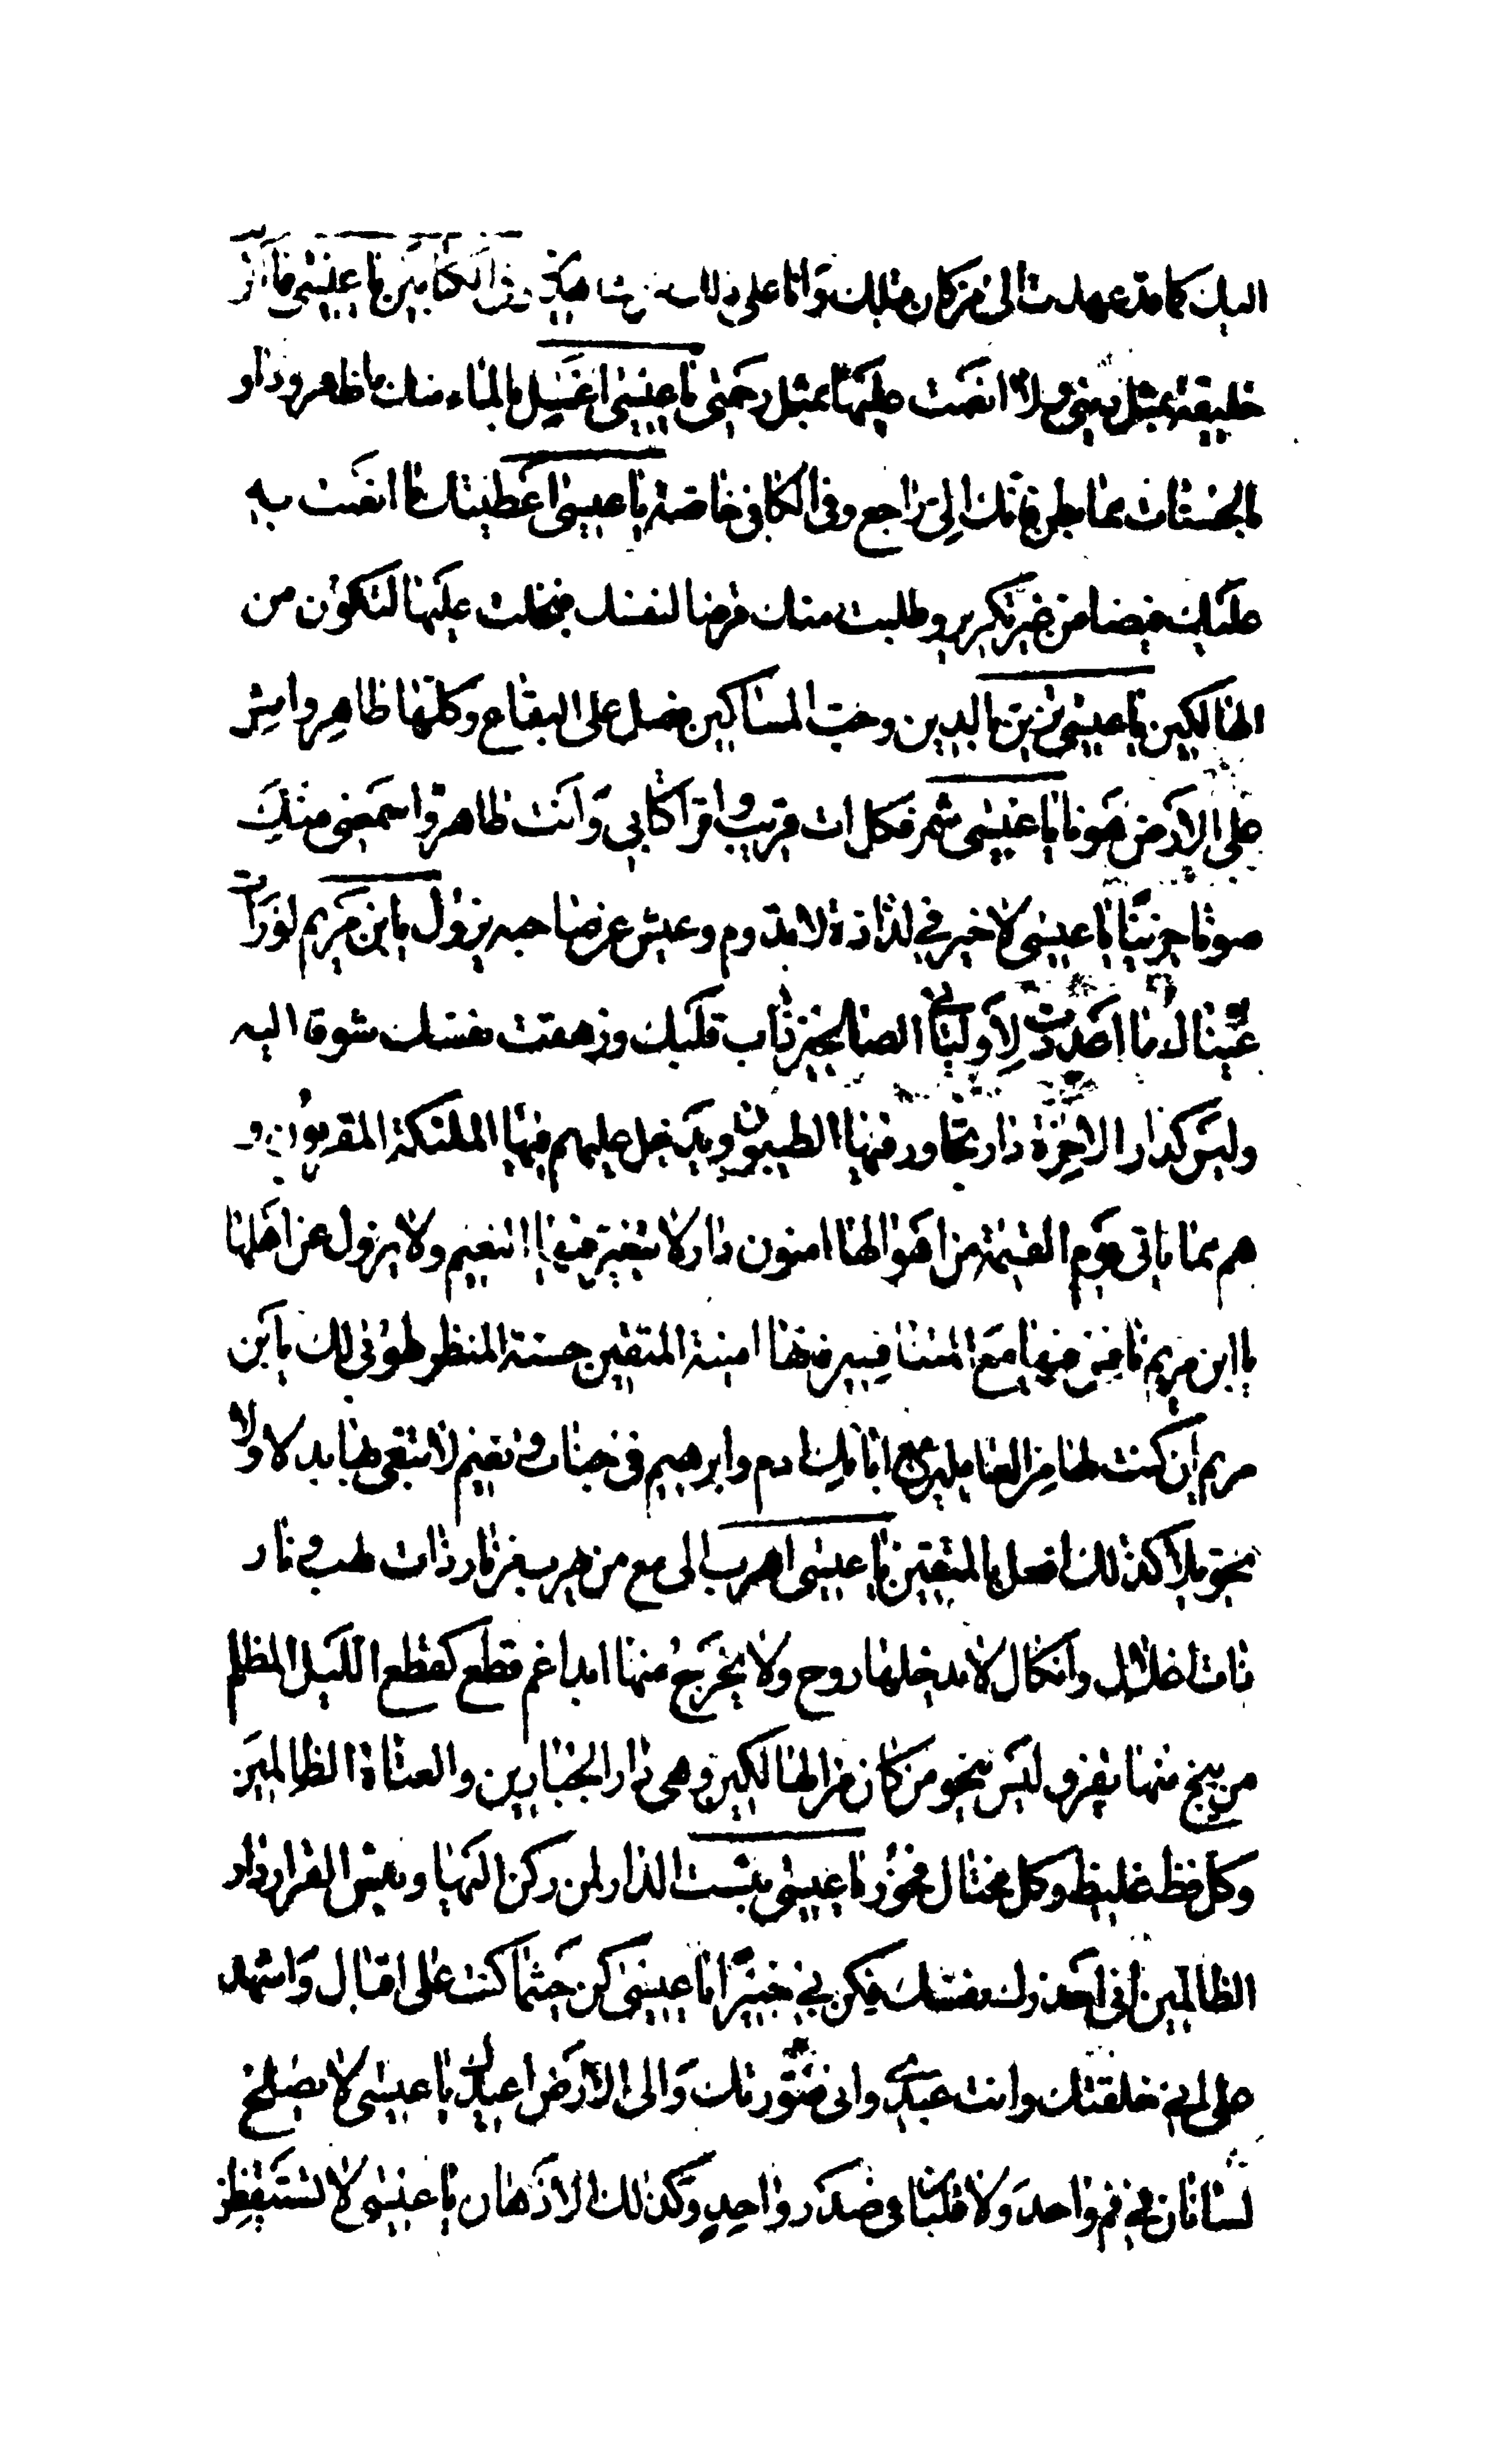 اليك كما قد عهدت الى من كان قبلك وانا على ذلك من الشاهدين وفى الكافى يا عيسى ما اكرمت
خليقة بمثل دينى ولا انعمت عليها بمثل رحمتى يا عيسى اغسل بالماء منك ما ظهر وداو
بالحسنات ما بطن فانك الى راجع وفى الكافى خاصة يا عيسى اعطيتك ما انعمت به
عليك فيضا من غير تكرير وطلبت منك قرضا لنفسك فبخلت عليها لتكون من
الهالكين يا عيسى تزين بالدين وحب المساكين وصل على البقاع وكلها طاهر وامش
على الارض هونا يا عيسى شمر فكل ات قريب واقرأ كتابى وانت طاهر واسمعنى منك
صوتا حزينا يا عيسى لا خير فى لذاذة لا تدوم وعيش عن صاحبه يزول يا ابن مريم لو رأت
عينك ما اعددت لاوليائى الصالحين ذاب قلبك وزهقت نفسك شوقا اليه
وليس كدار الاخرة دار تجاور فيها الطيبون ويدخل عليهم فيها الملئكة المقربون و
هم مما ياتى يوم القيمة من اهوالها امنون دار لا يتغير فيها النعيم ولا يزول عن اهلها
يا ابن مريم نافس فيها مع المتنافسين فانها امنية المتقين حسنة المنظر طوبى لك يا ابن
مريم ان كنت لها من العاملين مع ابائك ادم وابرهيم فى جنات ونعيم لا تبغى بها بدلا ولا
تحويلا كذلك افعل بالمتقين يا عيسى اهرب الى مع من يهرب من نار ذات لهب ونار
ذات اغلال وانكال لا يدخلها روح ولا يخرج منها غم ابدا قطع كقطع الليل المظلم
من ينج منها يفز وليس ينجو من كان من الهالكين وهى دار الجبارين والعتاة الظالمين
وكل فظ غليظ وكل مختال فخور يا عيسى بئست الدار لمن ركن اليها وبئس القرار دار
الظالمين انى احذرك نفسك فكن بى خبيرا يا عيسى كن حيثما كنت على اقبال واشهد
على انى خلقتك وانت عبدى وانى صورتك والى الارض اهبطتك يا عيسى لا يصلح
لسانان فى فم واحد ولا قلبان فى صدر واحد وكذلك الاذهان يا عيسى لا تستيقظن